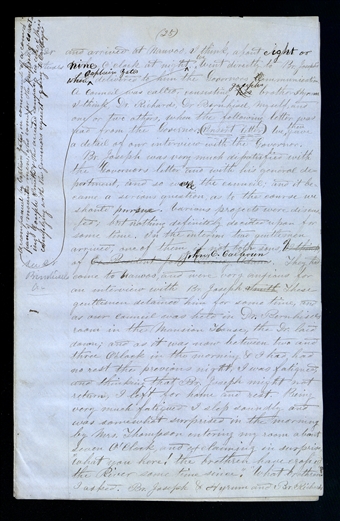 (25)
and arrived at Nauvoo I think about eight or
nine o'clock at night & went directly to Br Joseph
when Captain Yates delivered to him the Governors communication
A council was called, consisting of Joseph's brother Hyrum
Dr. Richards, Dr. Bernhisel, myself and
one or two others, when the following letter was
read from the Governor (Insert letter)
a detail of our interview with the Governor.
Br. Joseph was very much dissatisfied with
the Governors letter and with his general de-
portment, and so were the council, and it be
came a serious question, as to the course we
should pursue. Various projects were discus
sed, but nothing definitely decided upon for
some time. In the interim two gentlemen
arrived, one of them if not both sons of
John C. Calhoun They had
come to Nauvoo, and were very anxious for
an interview with Br. Joseph Smith These
gentlemen detained him for some time, and
as our council was held in Dr. Bernhisels
room in the Mansion House, the Dr laid
down; and as it was now between two and
three O'Clock in the morning & I had had
no rest the previous night, I was fatigued,
and thinking that Br. Joseph might not
return, I left for home and rest. Being
very much fatigued I slept soundly, and
was somewhat surprised in the morning
by Mrs. Thompson entering my room about
seven O'Clock, and exclaiming in surprise
"what you here, the brethren have crossed
the River some time since;" "What brethren"
I asked. "Br. Joseph & Hyrum and Br. Richards